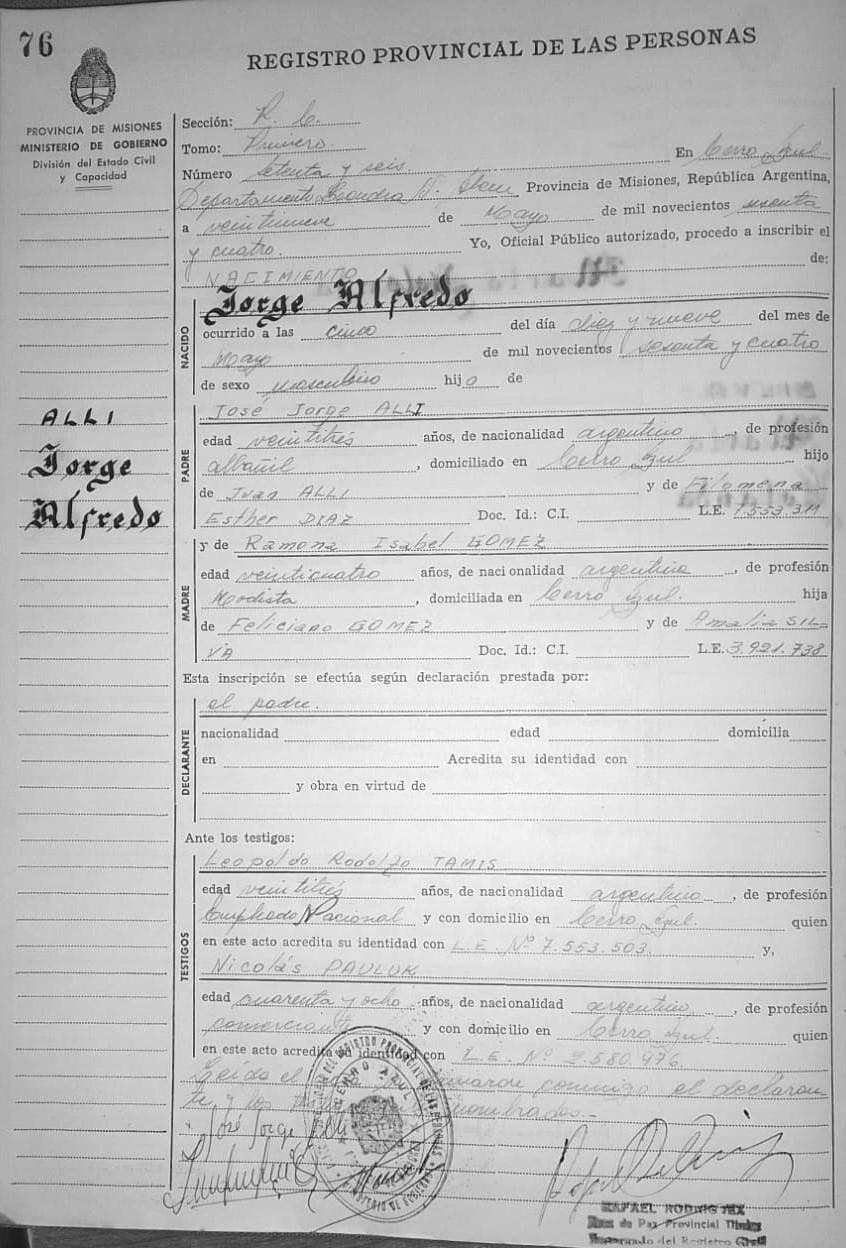 76
REGISTRO PROVINCIAL DE LAS PERSONAS
PROVINCIA DE MISIONES
MINISTERIO DE GOBIERNO
División del Estado Civil
y Capacidad
Sección: R. C.
Tomo: Primero.
Número setenta y seis. En Cerro Azul.
Departamento Leandro N. Alem Provincia de Misiones, República Argentina,
a veintinueve de Mayo de mil novecientos sesenta
y cuatro. Yo, Oficial Público autorizado, procedo a inscribir el
NACIMIENTO de:
NACIDO
Jorge Alfredo
ocurrido a las cinco del día diez y nueve del mes de
Mayo de mil novecientos sesenta y cuatro
de sexo masculino hijo de
ALLI
Jorge
Alfredo
PADRE
José Jorge ALLI
edad veintitrés años, de nacionalidad argentino, de profesión
albañil, domiciliado en Cerro Azul hijo
de Juan ALLI y de Filomena
Esther DIAZ Doc. Id.: C.I. L.E. 7.553.311
y de Ramona Isabel GOMEZ
MADRE
edad veinticuatro años, de nacionalidad argentina, de profesión
Modista, domiciliada en Cerro Azul. hija
de Feliciano GOMEZ y de Amalia SIL-
VA Doc. Id.: C.I. L.E. 3.921.738
Esta inscripción se efectúa según declaración prestada por:
el padre.
DECLARANTE
nacionalidad edad domicilia
en Acredita su identidad con
y obra en virtud de
Ante los testigos:
TESTIGOS
Leopoldo Rodolfo TAMIS
edad veintitrés años, de nacionalidad argentino, de profesión
Empleado Nacional y con domicilio en Cerro Azul. quien
en este acto acredita su identidad con L.E. Nº 7.553.503. y,
Nicolás PAULUK
edad cuarenta y ocho años, de nacionalidad argentino, de profesión
comerciante y con domicilio en Cerro Azul. quien
en este acto acredita su identidad con L.E. Nº 2.580.976.
Leída el firmaron conmigo el declaran
te y los nombrados.-
José Jorge Alli
CERRO AZUL
RAFAEL RODRIGUEZ
Juez de Paz Provincial Titular
Encargado del Registro Civil